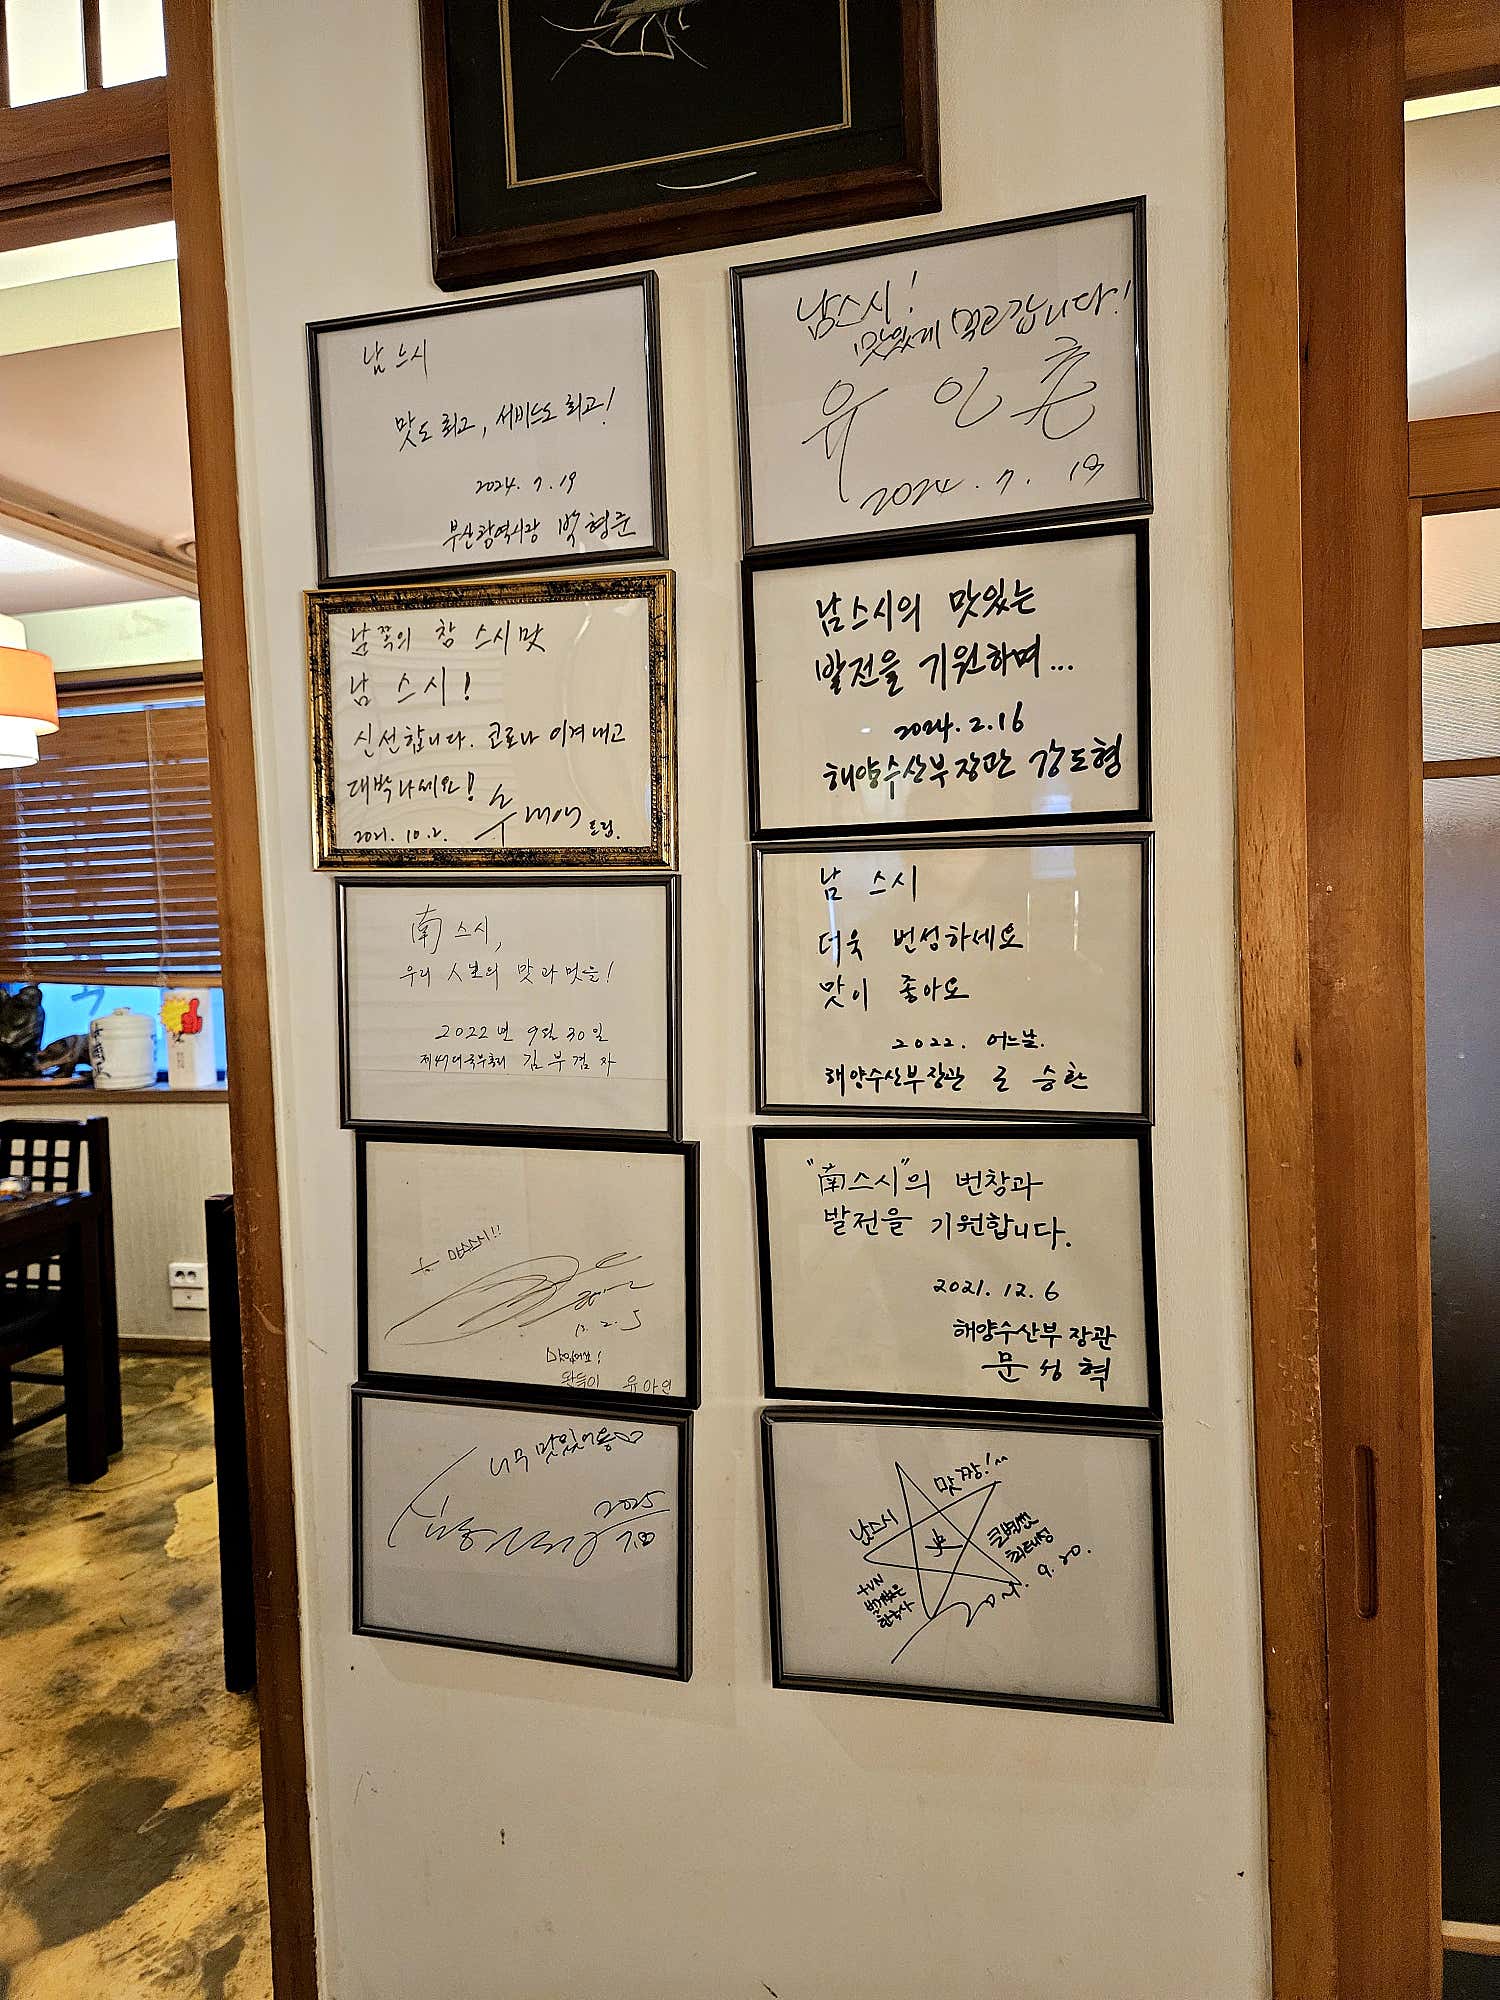 남스시
맛도 최고, 서비스도 최고!
2024. 7. 19
부산광역시장 박형준
남스시!
맛있게 먹고 갑니다!
유인촌
2024. 7. 19
남쪽의 참 스시맛
남 스시!
신선합니다. 코로나 이겨내고
대박나세요!
2021. 10. 2. 드림.
남스시의 맛있는
발전을 기원하며...
2024. 2. 16
해양수산부장관 강도형
南 스시,
우리 人生의 맛과 멋을!
2022년 9월 30일
제47대 국무총리 김부겸
남 스시
더욱 번성하세요
맛이 좋아요
2022. 어느날.
해양수산부장관 승환
12. 2. 5
맛있어요!
완득이 유아인
"南스시"의 번창과
발전을 기원합니다.
2021. 12. 6
해양수산부 장관
문성혁
너무 맛있어용♡
2025
7.20
맛 짱!^^
남스시
큰별쌤
최태성
9. 20.
tvN
벌거벗은
한국사